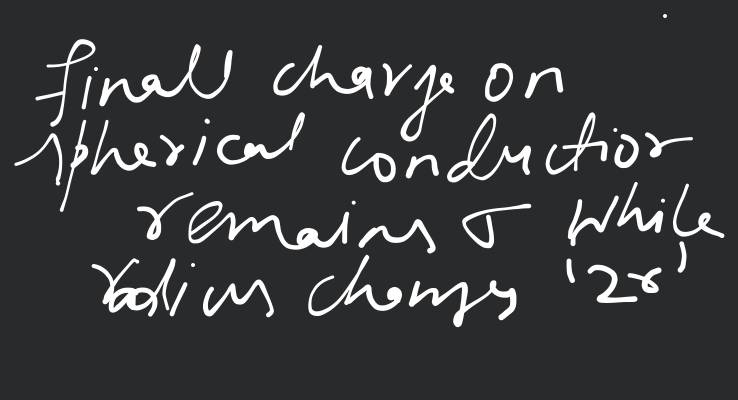 final charge on
spherical conductior
remains σ while
radius changes '2r'